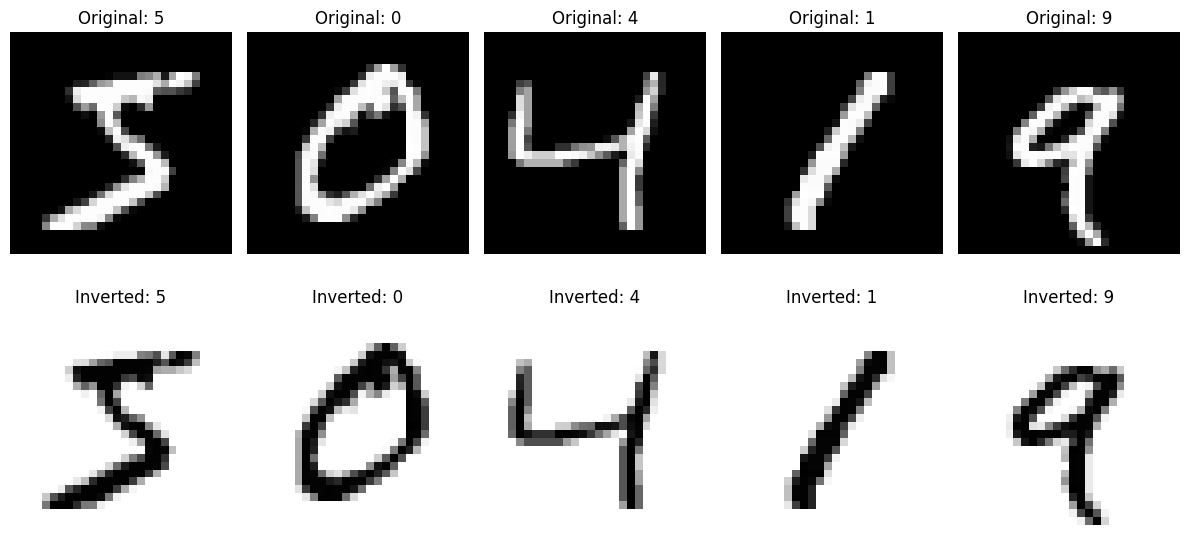 Original: 5 Original: 0 Original: 4 Original: 1 Original: 9
5 0 4 1 9
Inverted: 5 Inverted: 0 Inverted: 4 Inverted: 1 Inverted: 9
5 0 4 1 9